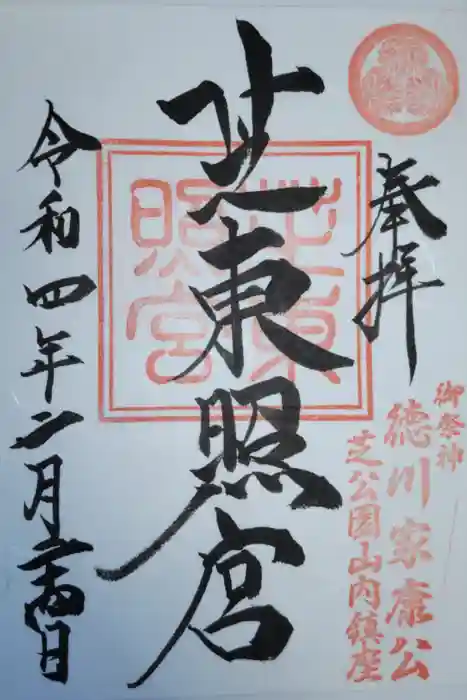 奉拝
御祭神
徳川家康公
芝公園山内鎮座
芝東照宮
芝東照宮
令和四年二月二十四日